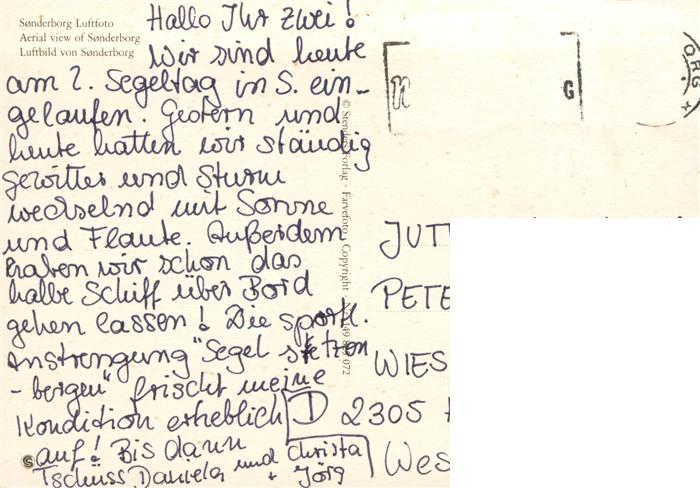 Sønderborg Luftfoto
Aerial view of Sønderborg
Luftbild von Sønderborg
Hallo Ihr zwei!
Wir sind heute
am 2. Segeltag in S. ein-
gelaufen. Gestern und
heute hatten wir ständig
Gewitter und Sturm
wechselnd mit Sonne
und Flaute. Außerdem
haben wir schon das
halbe Schiff über Bord
gehen lassen! Die sportl.
Anstrengung "Segel
-bergen" frischt meine
Kondition erheblich
auf! Bis dann
Tschüss Daniela und Christa
+ Jörg
© Stenders Forlag - Farvefoto - Copyright
072
ORG
G
JUT
PETE
WIES
D 2305
Wes